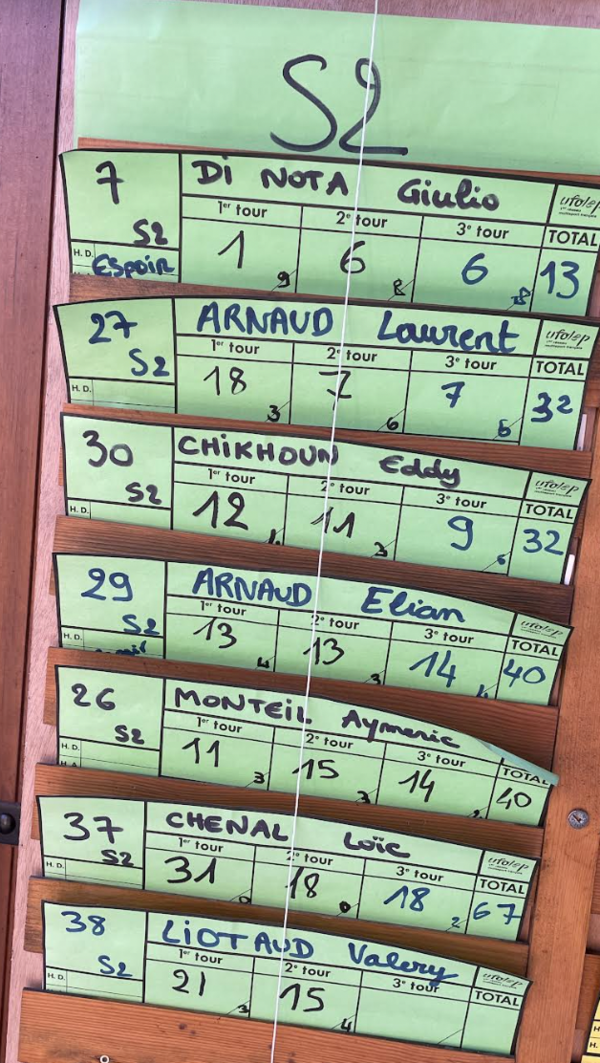 S2
7 DI NOTA Giulio ufolep
1er tour 2e tour 3e tour TOTAL
S2 1 6 6 13
H. D. Espoir 9 8 8
27 ARNAUD Laurent ufolep
1er tour 2e tour 3e tour TOTAL
S2 18 7 7 32
H. D. 3 6 5
30 CHIKHOUN Eddy ufolep
1er tour 2e tour 3e tour TOTAL
S2 12 11 9 32
H. D. 3
29 ARNAUD Elian ufolep
1er tour 2e tour 3e tour TOTAL
S2 13 13 14 40
H. D. 4 3
26 MONTEIL Aymeric
1er tour 2e tour 3e tour TOTAL
S2 11 15 14 40
H. D. 3 3
37 CHENAL Loïc ufolep
1er tour 2e tour 3e tour TOTAL
S2 31 18 18 67
H. D. 0 0 2
38 LIOTAUD Valery ufolep
1er tour 2e tour 3e tour TOTAL
S2 21 15
H. D. 3 4